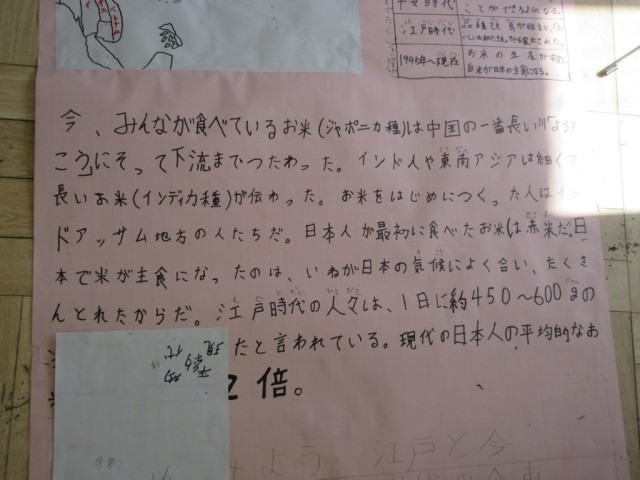 平安時代
ことができるようになる。
江戸時代
1945年〜現在
お米の生産が
白米が日本の主食になる。
今、みんなが食べているお米(ジャポニカ種)は中国の一番長い川「よう
こう」にそって下流までつたわった。インド人や東南アジアは細くて
長いお米(インディカ種)が伝わった。お米をはじめにつくった人はイン
ドアッサム地方の人たちだ。日本人が最初に食べたお米は赤米だ。日
本で米が主食になったのは、いねが日本の気候によく合い、たくさ
んとれたからだ。江戸時代の人々は、1日に約450〜600gの
たと言われている。現代の日本人の平均的なお
2倍。
現代
平均
江戸と今